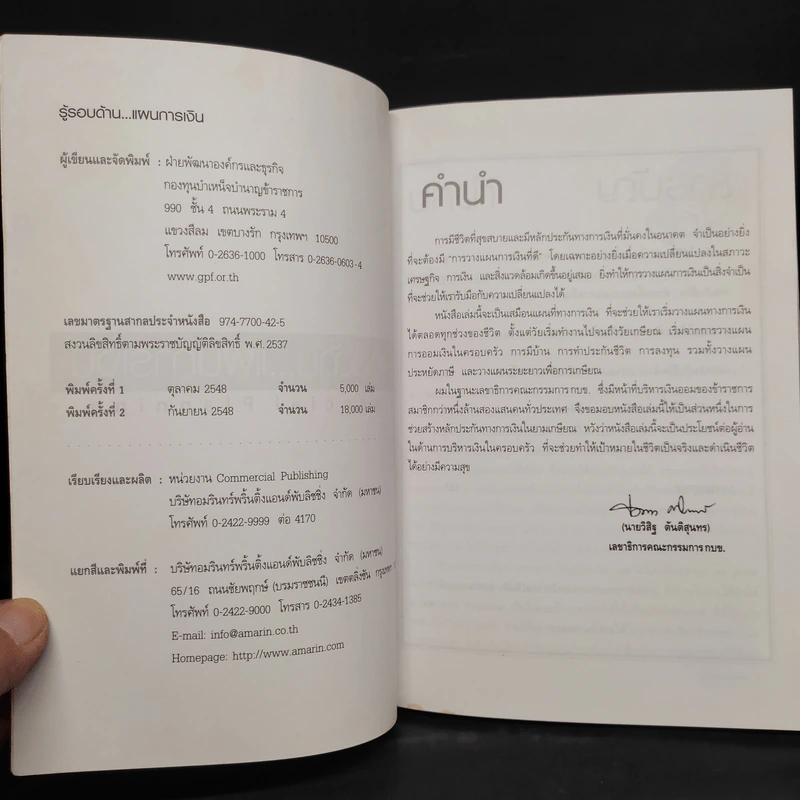 รู้รอบด้าน...แผนการเงิน
ผู้เขียนและจัดพิมพ์ : ฝ่ายพัฒนาองค์กรและธุรกิจ
กองทุนบำเหน็จบำนาญข้าราชการ
990 ชั้น 4 ถนนพระราม 4
แขวงสีลม เขตบางรัก กรุงเทพฯ 10500
โทรศัพท์ 0-2636-1000 โทรสาร 0-2636-0603-4
www.gpf.or.th
เลขมาตรฐานสากลประจำหนังสือ 974-7700-42-5
สงวนลิขสิทธิ์ตามพระราชบัญญัติลิขสิทธิ์ พ.ศ.2537
พิมพ์ครั้งที่ 1 ตุลาคม 2548 จำนวน 5,000 เล่ม
พิมพ์ครั้งที่ 2 กันยายน 2548 จำนวน 18,000 เล่ม
เรียบเรียงและผลิต : หน่วยงาน Commercial Publishing
บริษัทอมรินทร์พริ้นติ้งแอนด์พับลิชชิ่ง จำกัด (มหาชน)
โทรศัพท์ 0-2422-9999 ต่อ 4170
แยกสีและพิมพ์ที่ : บริษัทอมรินทร์พริ้นติ้งแอนด์พับลิชชิ่ง จำกัด (มหาชน)
65/16 ถนนชัยพฤกษ์ (บรมราชชนนี) เขตตลิ่งชัน กรุงเทพฯ
โทรศัพท์ 0-2422-9000 โทรสาร 0-2434-1385
E-mail: info@amarin.co.th
Homepage: http://www.amarin.com
คำนำ
การมีชีวิตที่สุขสบายและมีหลักประกันทางการเงินที่มั่นคงในอนาคต จำเป็นอย่างยิ่ง
ที่จะต้องมี "การวางแผนการเงินที่ดี" โดยเฉพาะอย่างยิ่งเมื่อความเปลี่ยนแปลงในสภาวะ
เศรษฐกิจ การเงิน และสิ่งแวดล้อมเกิดขึ้นอยู่เสมอ ยิ่งทำให้การวางแผนการเงินเป็นสิ่งจำเป็น
ที่จะช่วยให้เรารับมือกับความเปลี่ยนแปลงได้
หนังสือเล่มนี้จะเป็นเสมือนแผนที่ทางการเงิน ที่จะช่วยให้เราเริ่มวางแผนทางการเงิน
ได้ตลอดทุกช่วงของชีวิต ตั้งแต่วัยเริ่มทำงานไปจนถึงวัยเกษียณ เริ่มจากการวางแผน
การออมเงินในครอบครัว การมีบ้าน การทำประกันชีวิต การลงทุน รวมทั้งวางแผน
ประหยัดภาษี และวางแผนระยะยาวเพื่อการเกษียณ
ผมในฐานะเลขาธิการคณะกรรมการ กบข. ซึ่งมีหน้าที่บริหารเงินออมของข้าราชการ
สมาชิกกว่าหนึ่งล้านสองแสนคนทั่วประเทศ จึงขอมอบหนังสือเล่มนี้ให้เป็นส่วนหนึ่งในการ
ช่วยสร้างหลักประกันทางการเงินในยามเกษียณ หวังว่าหนังสือเล่มนี้จะเป็นประโยชน์ต่อผู้อ่าน
ในด้านการบริหารเงินในครอบครัว ที่จะช่วยทำให้เป้าหมายในชีวิตเป็นจริงและดำเนินชีวิต
ได้อย่างมีความสุข
(นายวิสิฐ ตันติสุนทร)
เลขาธิการคณะกรรมการ กบข.